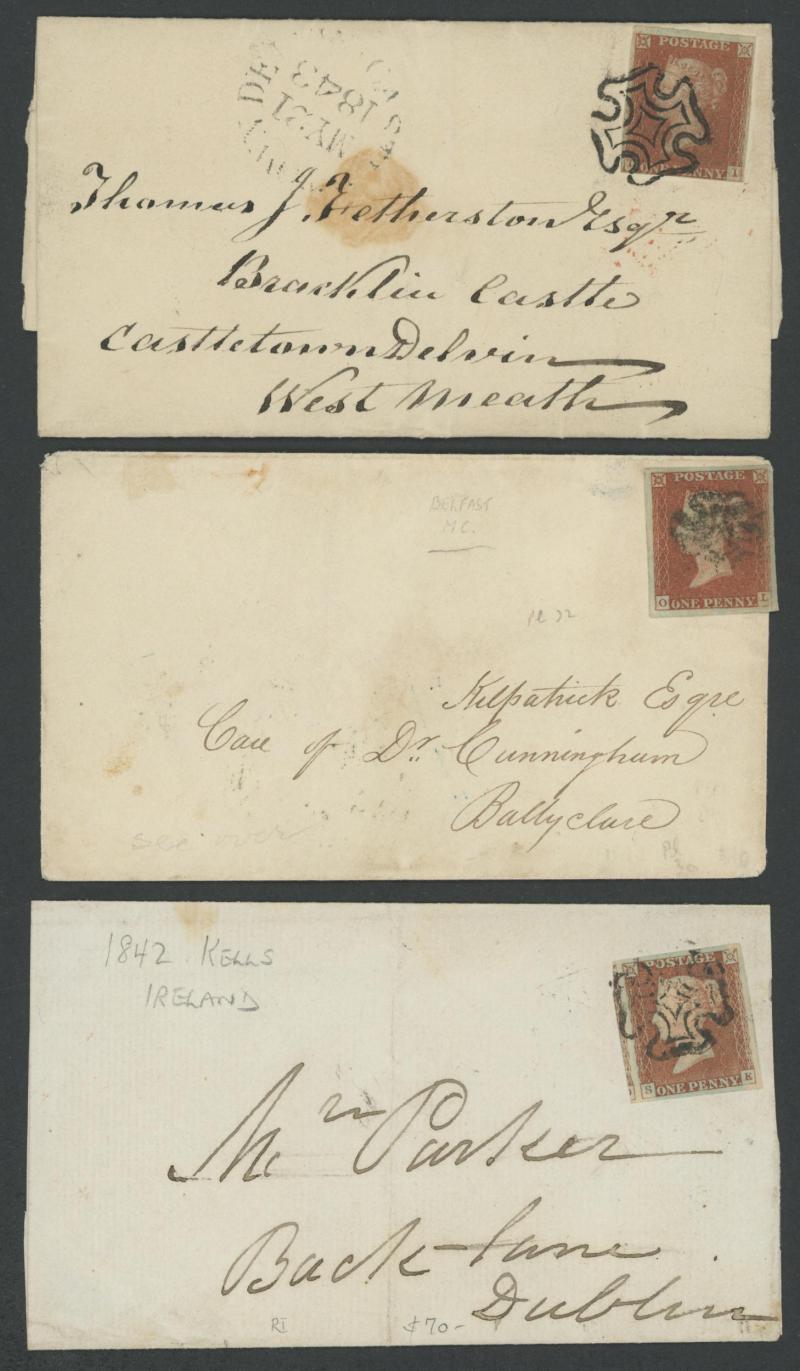 MY 21
1843
POSTAGE
ONE PENNY I
Thomas J. Fetherston Esqr
Bracklin Castle
Castletown Delvin
West Meath
BELFAST
M C.
POSTAGE
O ONE PENNY L
Pl 22
Kilpatrick Esqre
Care of Dr. Cunningham
Ballyclare
see over
1842 KELLS
IRELAND
POSTAGE
S ONE PENNY K
Mr Parker
Back-lane
Dublin
RI $70-